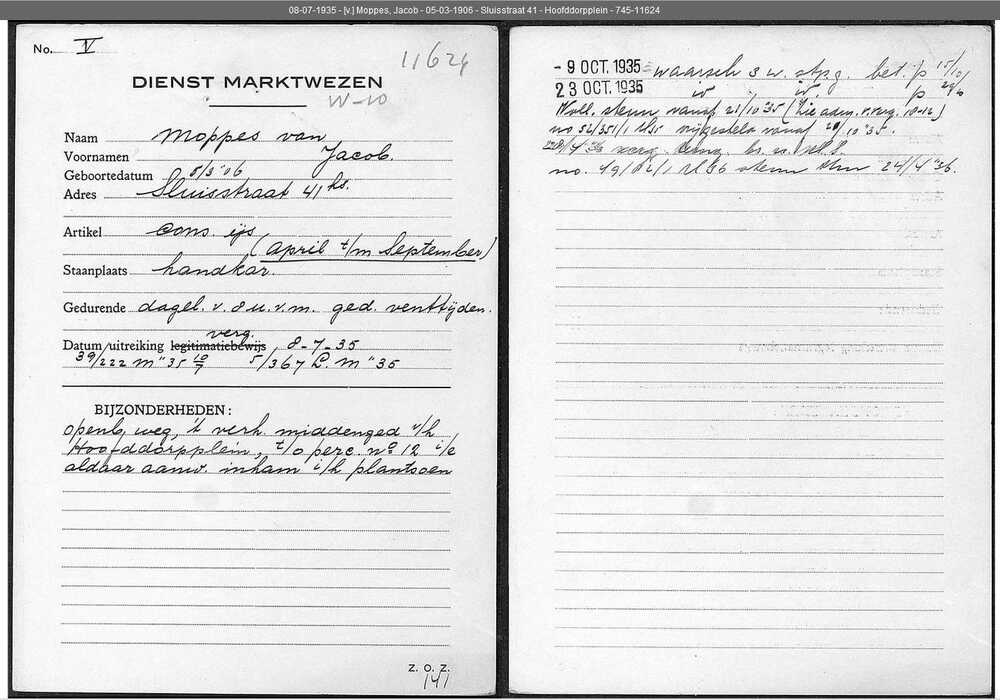 08-07-1935 - [v.] Moppes, Jacob - 05-03-1906 - Sluisstraat 41 - Hoofddorpplein - 745-11624
No. V
11624
DIENST MARKTWEZEN
W-10
Naam Moppes van
Voornamen Jacob.
Geboortedatum 5/3 '06
Adres Sluisstraat 41 hs.
Artikel cons. ijs
(april t/m September)
Staanplaats handkar.
Gedurende dagel. v. 8 u. v.m. ged. venttijden.
verg.
Datum uitreiking legitimatiebewijs 8-7-35
39/222 M "35 10/7 5/367 L. M "35
BIJZONDERHEDEN:
openb. weg, 't verh. middenged v/h
Hoofddorpplein, t/o perc. no 12 i/e
aldaar aanw. inham i/h plantsoen
Z. O. Z.
141
- 9 OCT. 1935 = waarsch 3 w. stpg. bet. 1/p 15/10
23 OCT. 1935 id id. 1/p
Woll. steun vanaf 21/10 '35 (Zie adm. v. verg. 10-12)
no 52/351/1 vrijgesteld vanaf 21/10 "35.
verg.
no. 49/ /1 36 steun t/m 24/4 "36.